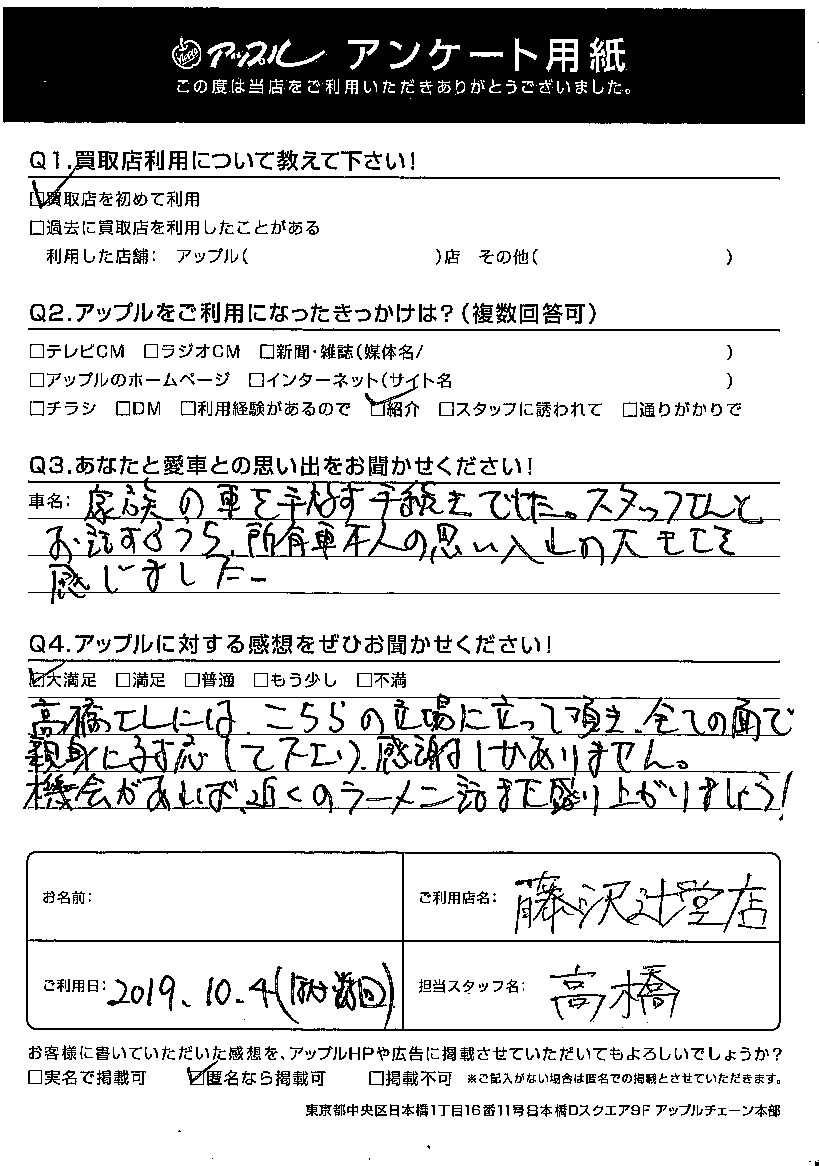 アップル アンケート用紙
この度は当店をご利用いただきありがとうございました。
Q1.買取店利用について教えて下さい!
☑買取店を初めて利用
□過去に買取店を利用したことがある
利用した店舗: アップル( )店 その他( )
Q2.アップルをご利用になったきっかけは?(複数回答可)
□テレビCM □ラジオCM □新聞・雑誌(媒体名/ )
□アップルのホームページ □インターネット(サイト名 )
□チラシ □DM □利用経験があるので ☑紹介 □スタッフに誘われて □通りがかりで
Q3.あなたと愛車との思い出をお聞かせください!
車名: 家族の車を手放す手続きでした。スタッフさんと
お話するうち、所有車本人の思い入れの大きさを
感じました
Q4.アップルに対する感想をぜひお聞かせください!
☑大満足 □満足 □普通 □もう少し □不満
高橋さんには、こちらの立場に立って頂き、全ての面で
親身に対応して下さり、感謝しかありません。
機会があれば、近くのラーメン話でも盛り上がりましょう!
お名前:
ご利用店名: 藤沢辻堂店
ご利用日: 2019.10.4(
担当スタッフ名: 高橋
お客様に書いていただいた感想を、アップルHPや広告に掲載させていただいてもよろしいでしょうか?
□実名で掲載可 ☑匿名なら掲載可 □掲載不可 ※ご記入がない場合は匿名での掲載とさせていただきます。
東京都中央区日本橋1丁目16番11号日本橋Dスクエア9F アップルチェーン本部